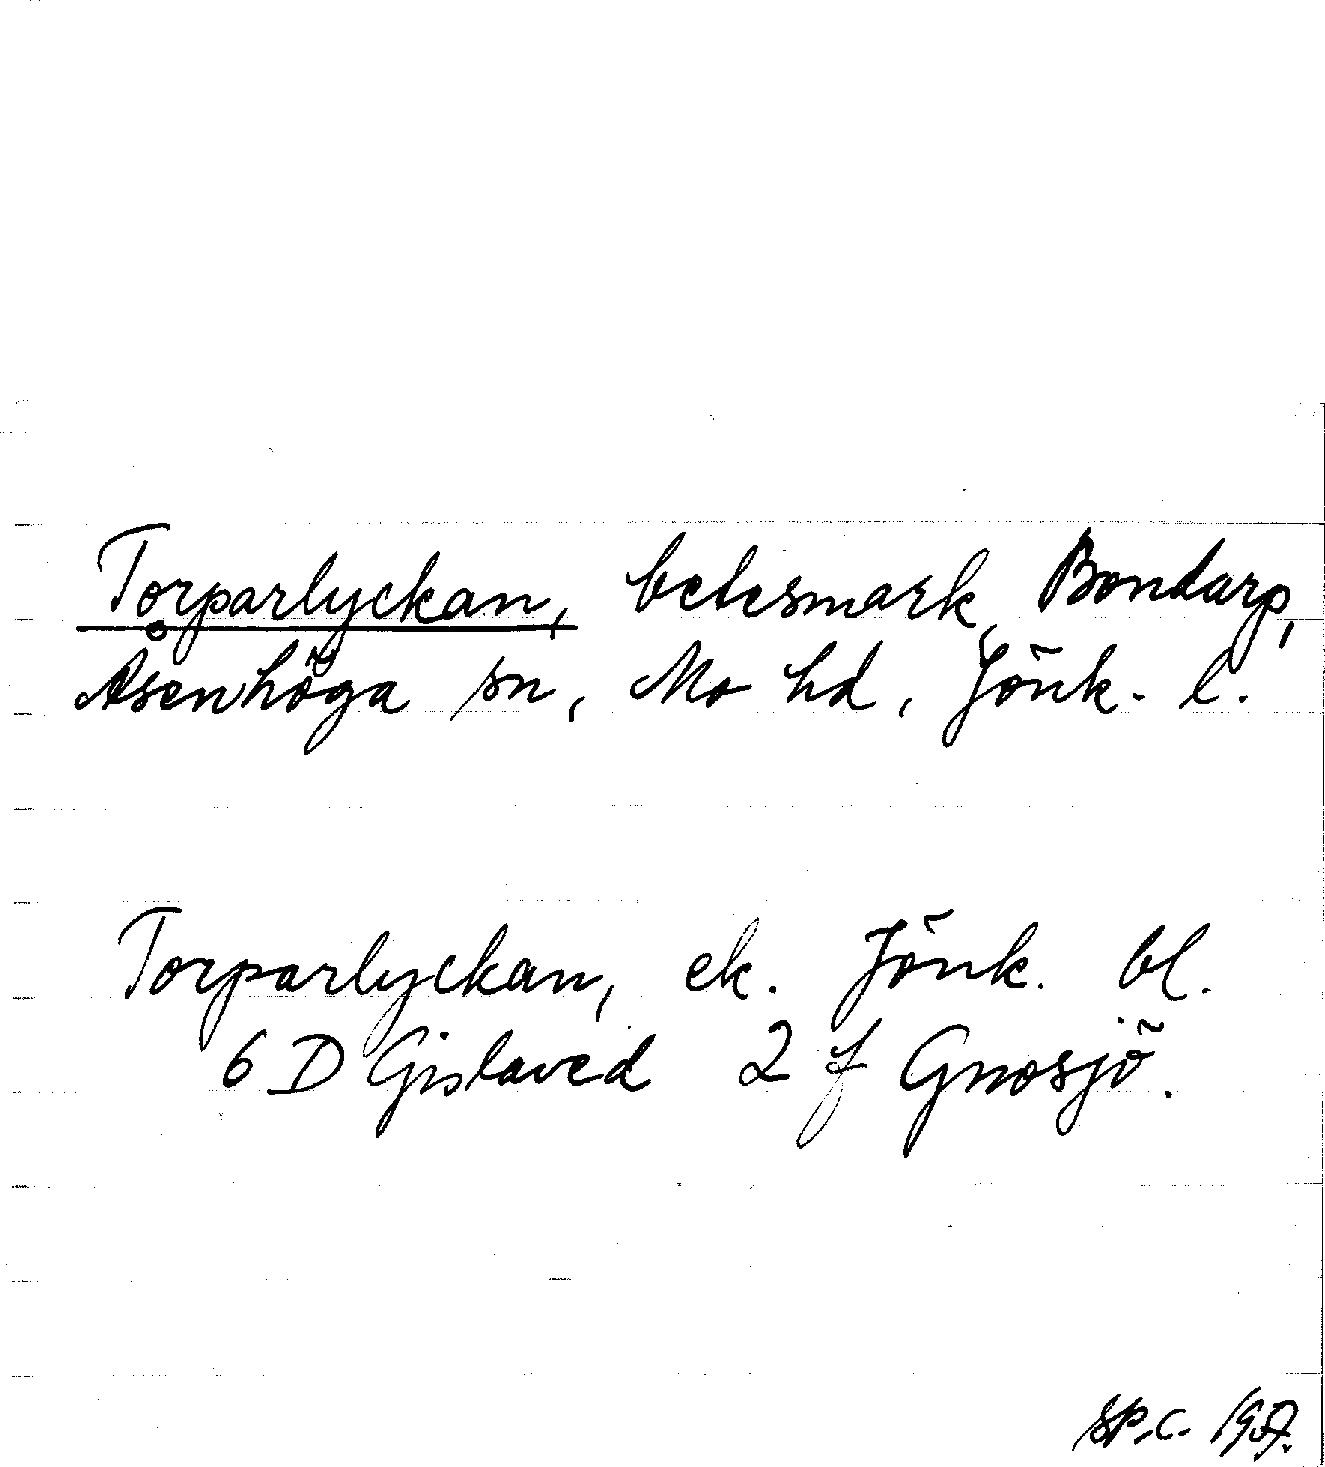 Torparlyckan, betesmark, Bondarp,
Åsenhöga sn, Mo hd, Jönk. l.
Torparlyckan, ek. Jönk. bl.
6 D Gislaved 2 f Gnosjö.